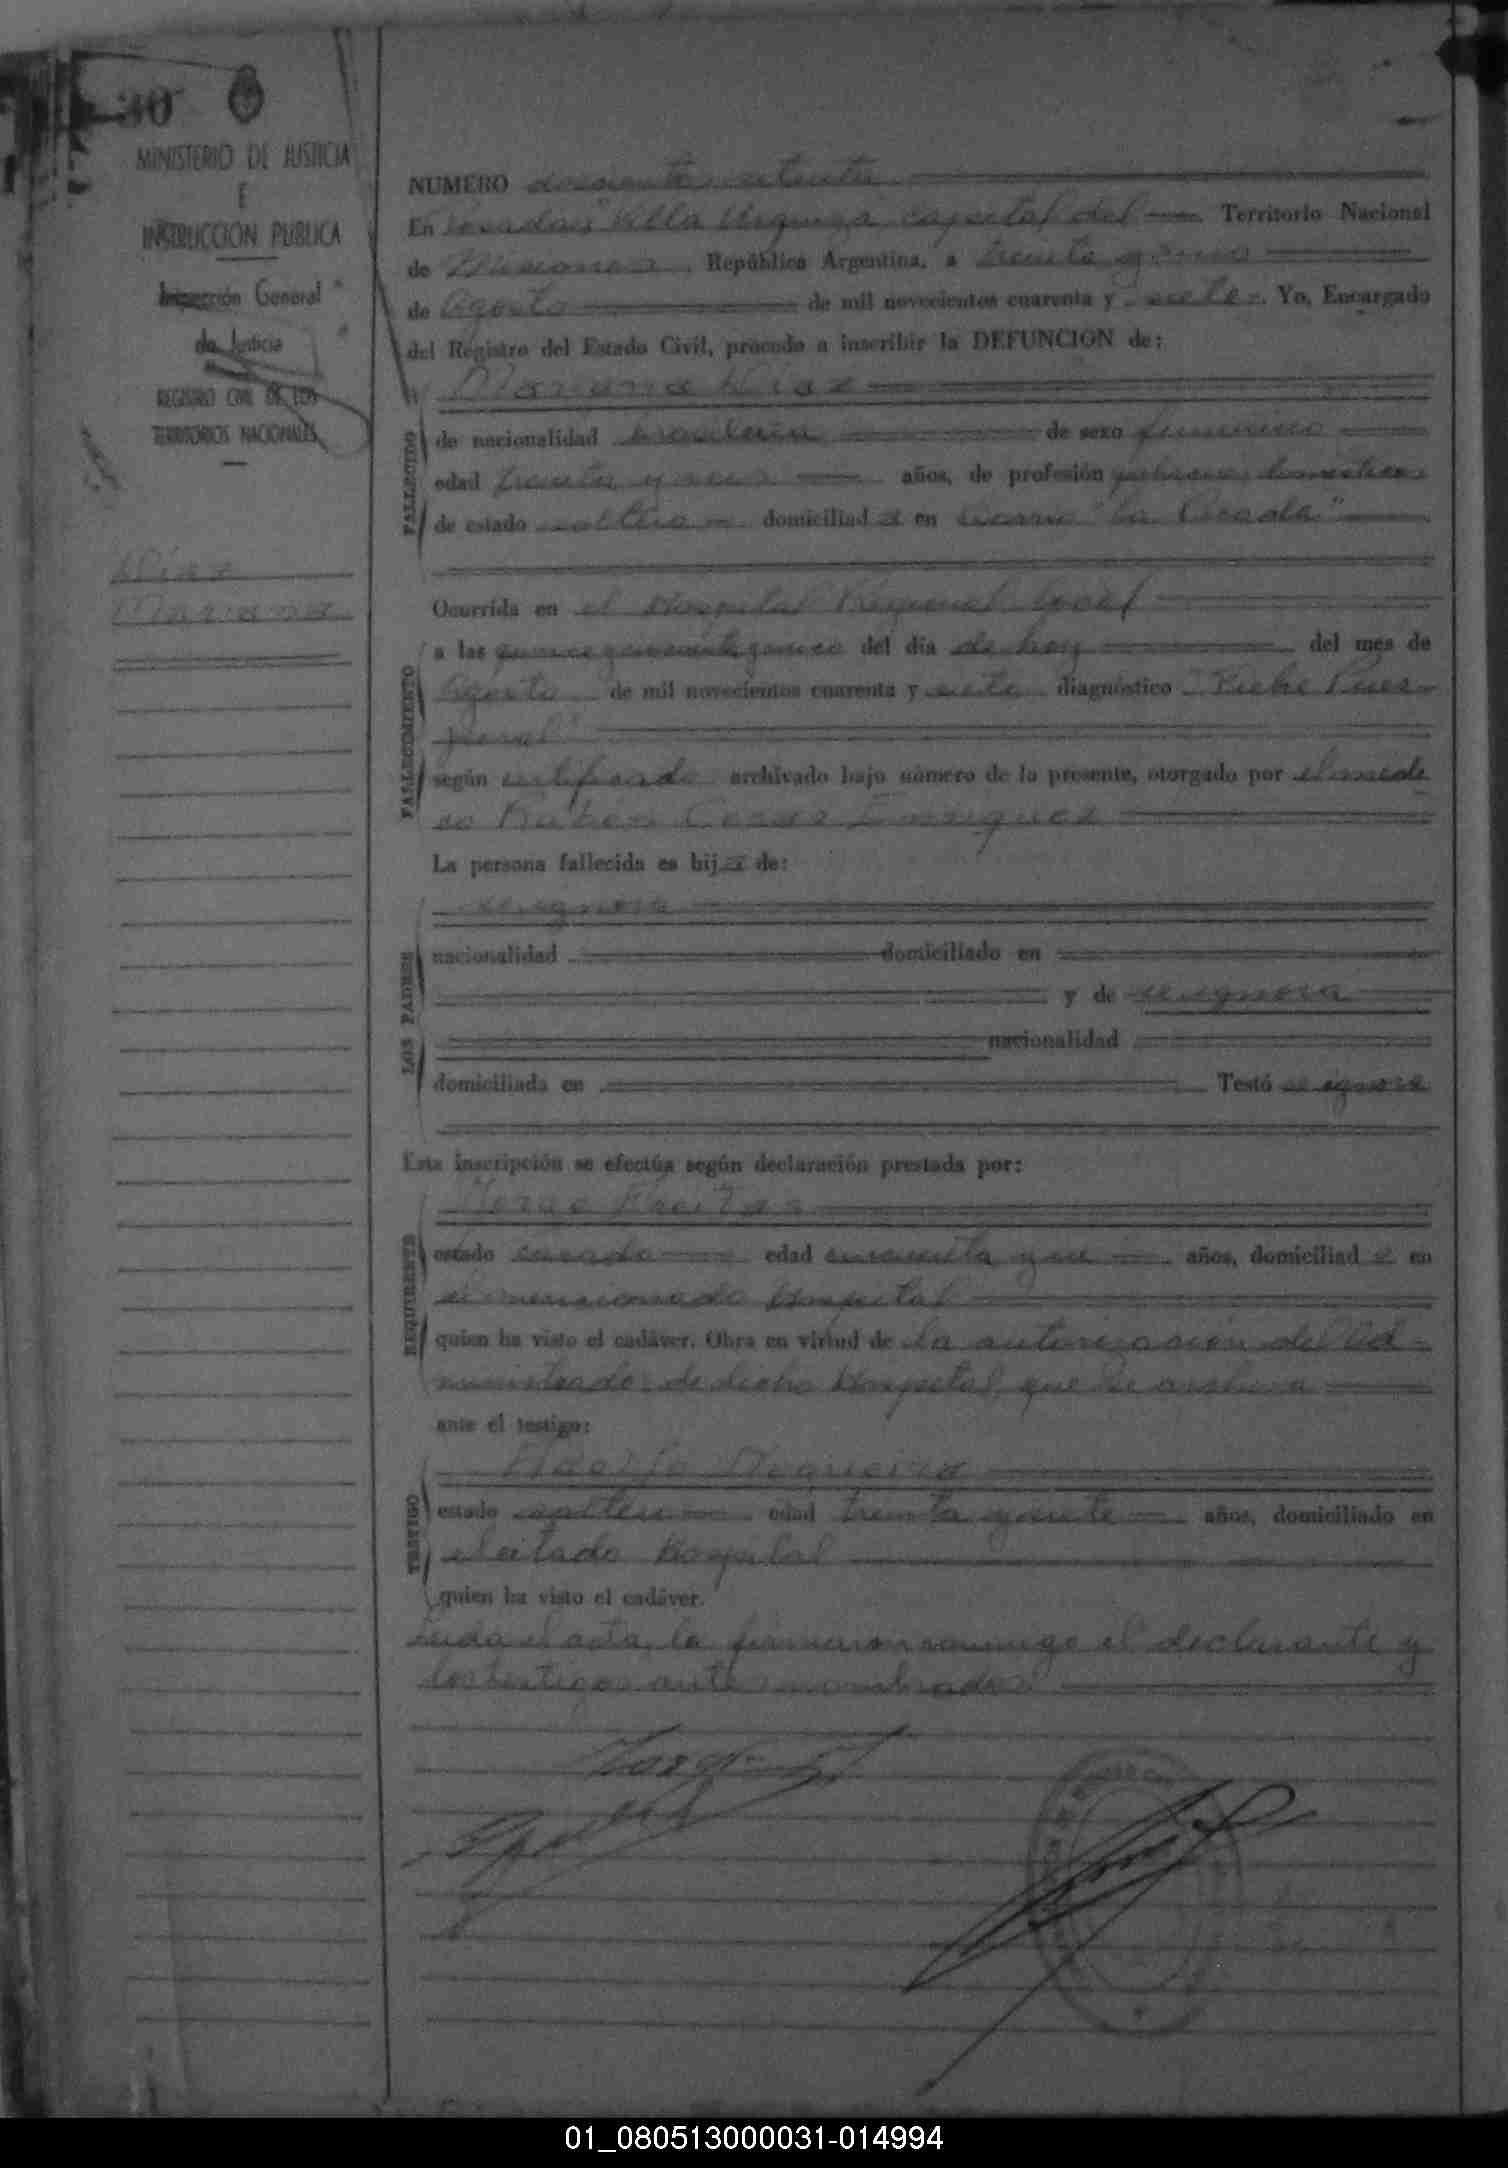 30
MINISTERIO DE JUSTICIA
E
INSTRUCCION PUBLICA
Inspección General
de Justicia
REGISTRO CIVIL DE LOS
TERRITORIOS NACIONALES
Diaz
Mariana
NUMERO doscientos setenta
En Posadas, Villa Urquiza capital del Territorio Nacional
de Misiones, República Argentina, a treinta y uno
de Agosto de mil novecientos cuarenta y siete. Yo, Encargado
del Registro del Estado Civil, procedo a inscribir la DEFUNCION de:
Mariana Diaz
FALLECIDO
de nacionalidad brasileña de sexo femenino
edad treinta y seis años, de profesión domésticos
de estado soltera domiciliada en barrio "La Picada"
FALLECIMIENTO
Ocurrida en el Hospital Regional local
a las quince y cincuenta y cinco del día de hoy del mes de
Agosto de mil novecientos cuarenta y siete diagnóstico "Fiebre Puer-
peral"
según certificado archivado bajo número de la presente, otorgado por el médi
co Ruben Enriquez
La persona fallecida es hija de:
LOS PADRES
se ignora
nacionalidad domiciliado en
y de se ignora
nacionalidad
domiciliada en Testó se ignora
Esta inscripción se efectúa según declaración prestada por:
REQUIRENTE
Jorge Freitas
estado casado edad cincuenta y seis años, domiciliado en
el mencionado Hospital
quien ha visto el cadáver. Obra en virtud de la autorización del Ad-
ministrador de dicho Hospital, que se archiva
ante el testigo:
TESTIGO
Adolfo Nogueira
estado soltero edad treinta y siete años, domiciliado en
el citado Hospital
quien ha visto el cadáver.
Leida el acta, la firmaron conmigo el declarante y
los testigos antes nombrados
01_080513000031-014994